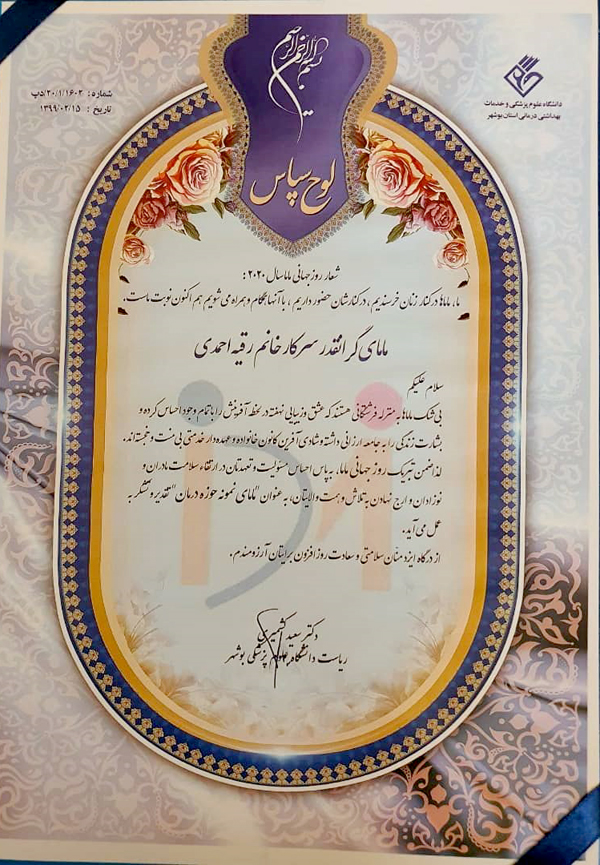 بسم الله الرحمن الرحیم
لوح سپاس
دانشگاه علوم پزشکی و خدمات
بهداشتی درمانی استان بوشهر
شماره: ۲۰/۱/۱۶۰۲/دپ
تاریخ: ۱۳۹۹/۰۲/۱۵
شعار روز جهانی ماما سال ۲۰۲۰:
ما، ماماها در کنار زنان خرسندیم، در کنارشان حضور داریم، با آنها همگام و همراه می شویم هم اکنون نوبت ماست.
مامای گرانقدر سرکار خانم رقیه احمدی
سلام علیکم
بی شک ماماها به منزله فرشتگانی هستند که عشق و زیبایی نهفته در لحظه آفرینش را با تمام وجود احساس کرده و
بشارت زندگی را به جامعه ارزانی داشته و شادی آفرین کانون خانواده و عهده دار خدمتی بی منت و خجسته اند.
لذا ضمن تبریک روز جهانی ماما، به پاس احساس مسؤلیت و تعهدتان در ارتقاء سلامت مادران و
نوزادان و ارج نهادن به تلاش و همت والایتان، به عنوان "مامای نمونه حوزه درمان" تقدیر و تشکر به
عمل می آید.
از درگاه ایزد منان سلامتی و سعادت روز افزون برایتان آرزومندم.
دکتر سعید کشمیری
ریاست دانشگاه علوم پزشکی بوشهر